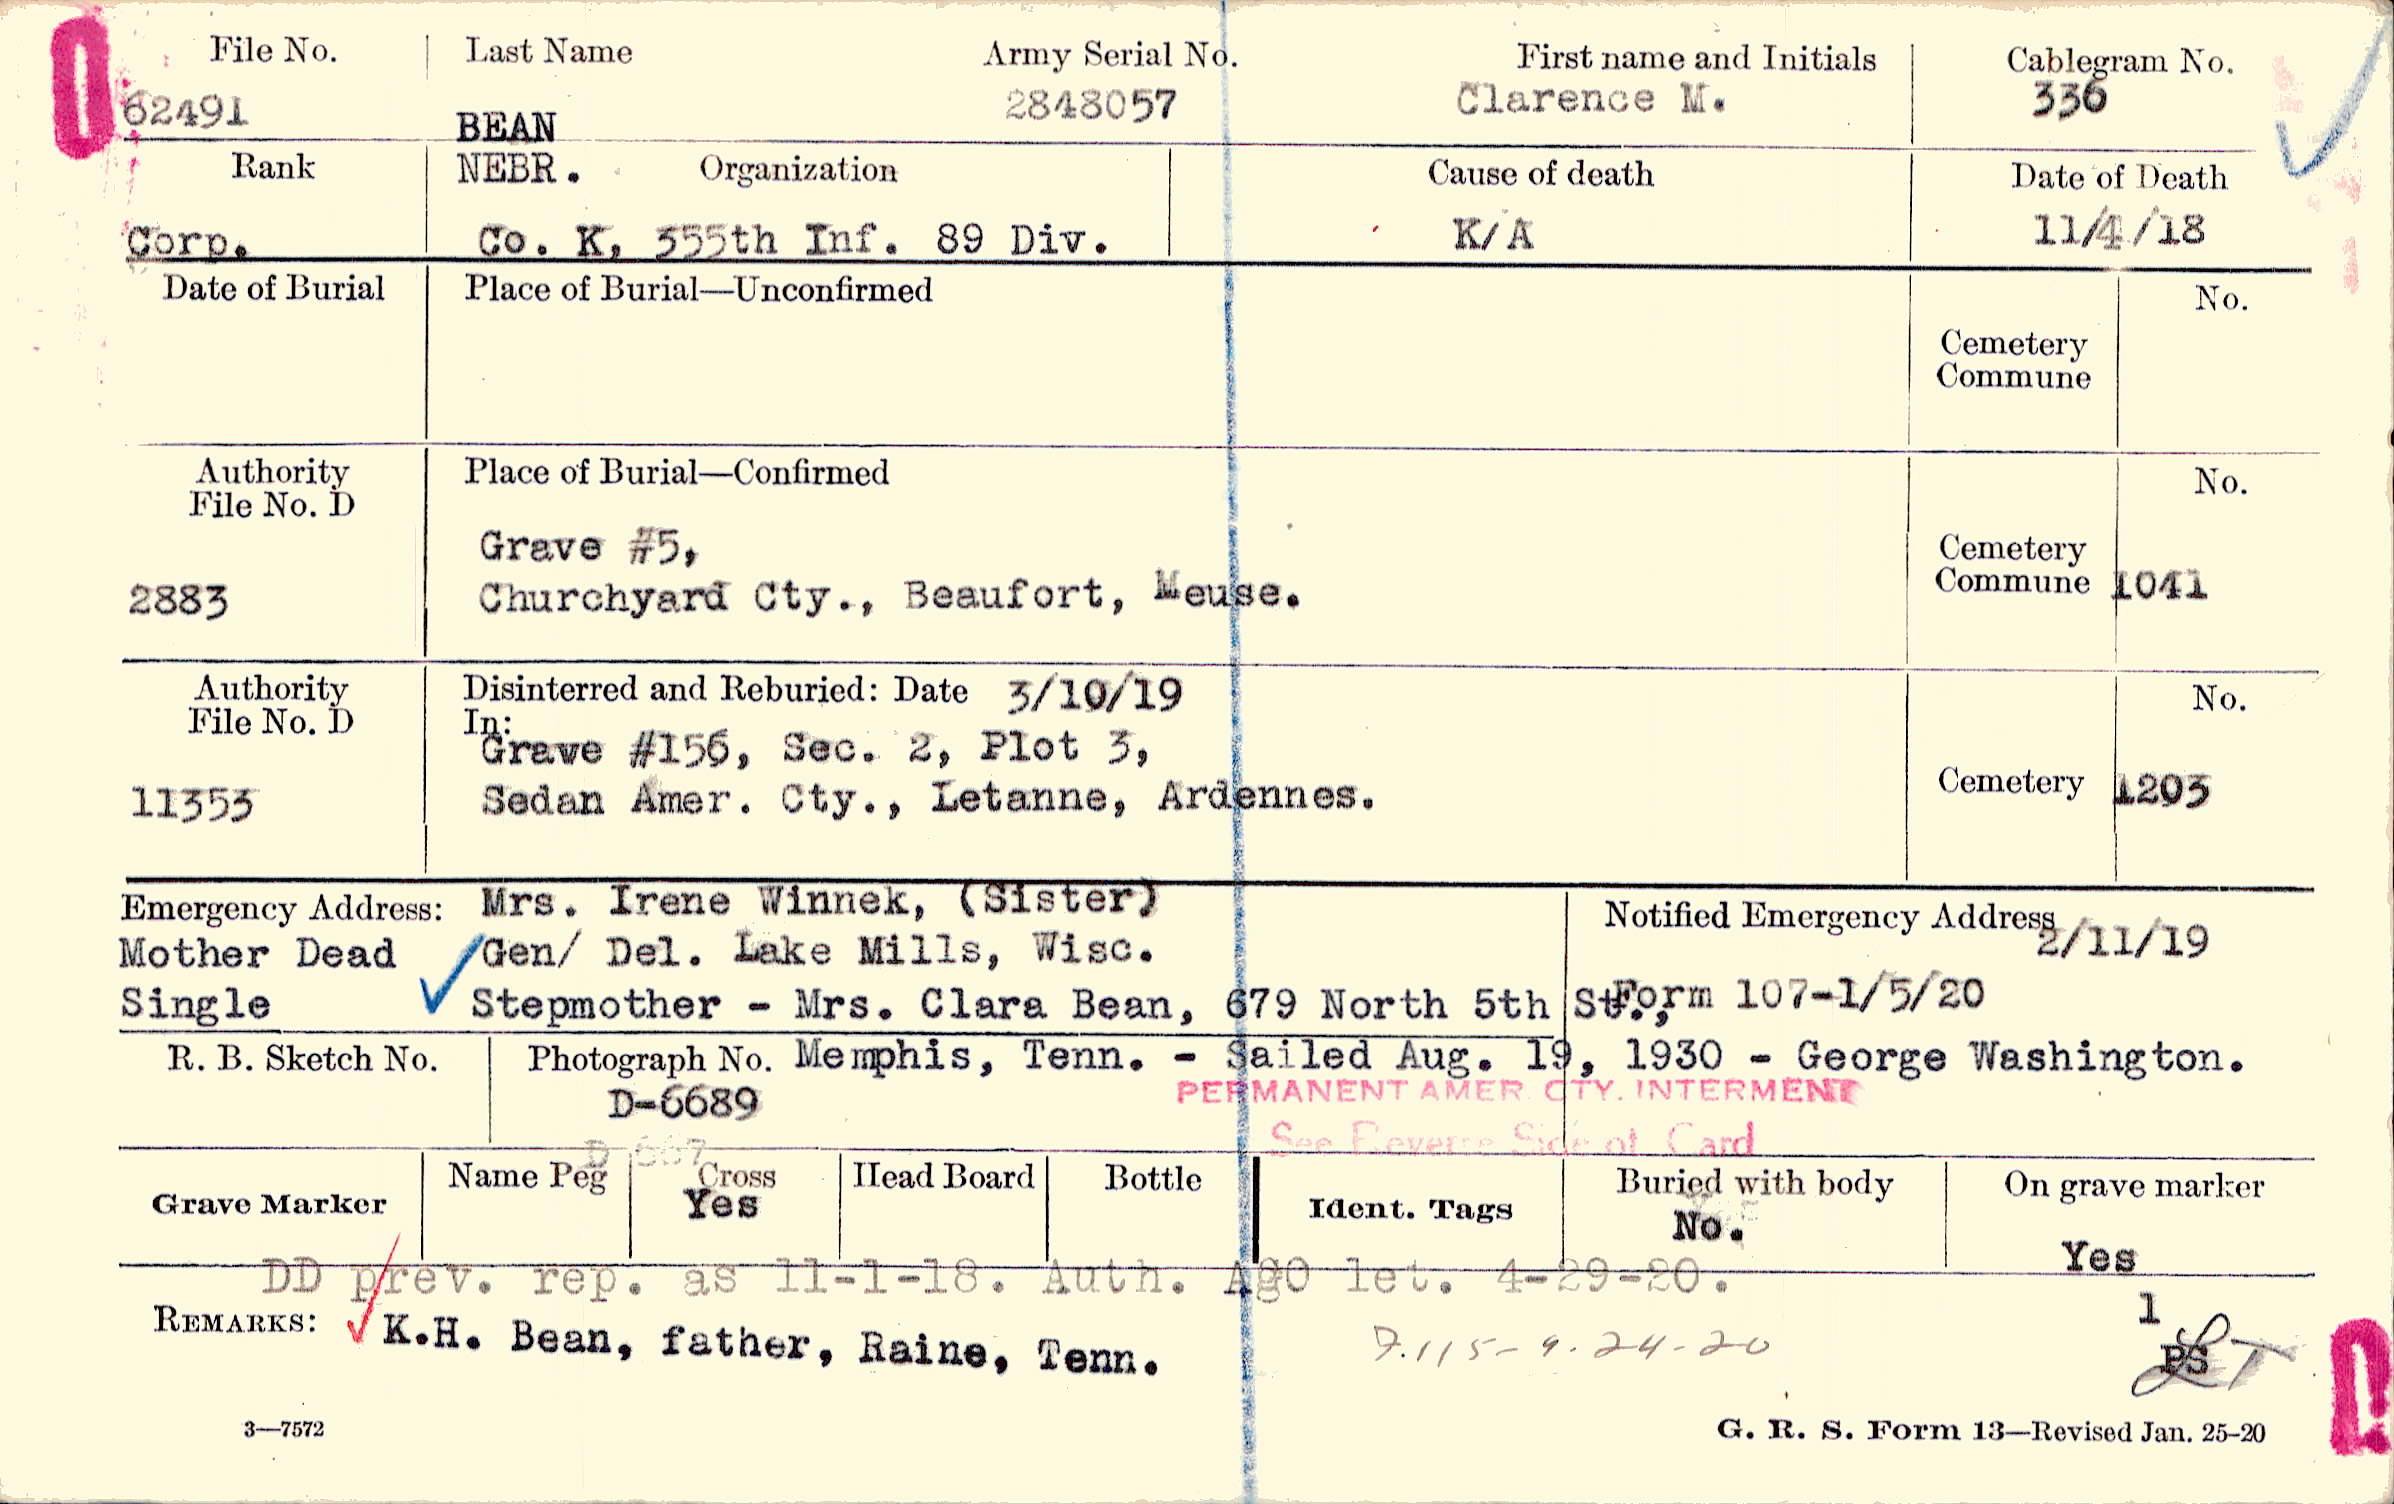 File No. Last Name Army Serial No. First name and Initials Cablegram No.
62491 BEAN 2848057 Clarence M. 336
Rank NEBR. Organization Cause of death Date of Death
Corp. Co. K, 355th Inf. 89 Div. K/A 11/4/18
Date of Burial Place of Burial—Unconfirmed No.
Cemetery
Commune
Authority Place of Burial—Confirmed No.
File No. D
Grave #5, Cemetery
2883 Churchyard Cty., Beaufort, Meuse. Commune 1041
Authority Disinterred and Reburied: Date 3/10/19 No.
File No. D In:
Grave #156, Sec. 2, Plot 3,
11353 Sedan Amer. Cty., Letanne, Ardennes. Cemetery 1203
Emergency Address: Mrs. Irene Winnek, (Sister) Notified Emergency Address
Mother Dead Gen/ Del. Lake Mills, Wisc. 2/11/19
Single Stepmother - Mrs. Clara Bean, 679 North 5th St., Form 107-1/5/20
R. B. Sketch No. Photograph No. Memphis, Tenn. - Sailed Aug. 19, 1930 - George Washington.
D-6689 PERMANENT AMER. CTY. INTERMENT
See Reverse Side of Card
Grave Marker Name Peg Cross Head Board Bottle Ident. Tags Buried with body On grave marker
Yes No. Yes
DD prev. rep. as 11-1-18. Auth. AgO let. 4-29-20.
REMARKS: K.H. Bean, father, Raine, Tenn. 7.115-9-24-20 1
PS
3—7572 G. R. S. Form 13—Revised Jan. 25-20